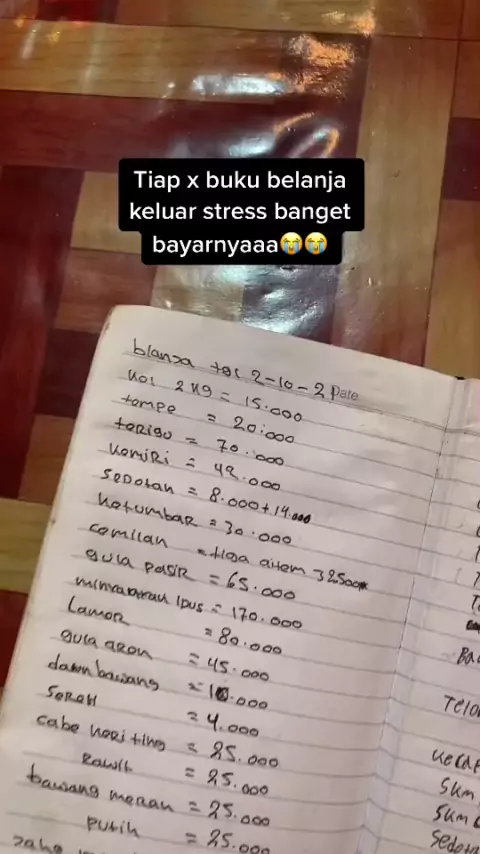 Tiap x buku belanja
keluar stress banget
bayarnyaaa😭😭
Date
blanxa tgl 2-10-2
kol 2 kg = 15.000
tempe = 20.000
terigu = 70.000
kemiri = 42.000
sedotan = 8.000 + 14.000
ketumbar = 30.000
cemilan = tiga aitem 32500
gula pasir = 65.000
= 170.000
= 80.000
gula aron = 45.000
daun bawang = 10.000
sereh = 4.000
cabe keriting = 25.000
Rawit = 25.000
bawang merah = 25.000
putih = 25.000
Telo
kecap
skm
skm
sedot